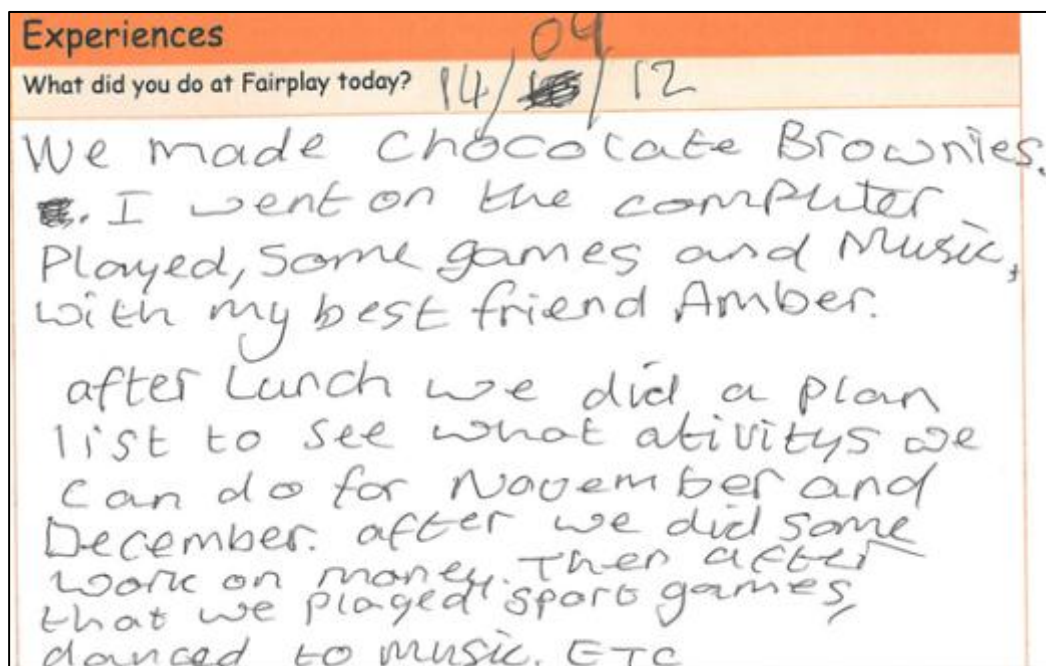 Experiences
What did you do at Fairplay today? 14/09/12
We made Chocolate Brownies.
. I went on the computer
Played, Some games and Music,
with my best friend Amber.
after Lunch we did a plan
list to see what ativitys we
can do for November and
December. after we did some
work on money. Then after
that we played sport games,
danced to music. ETC